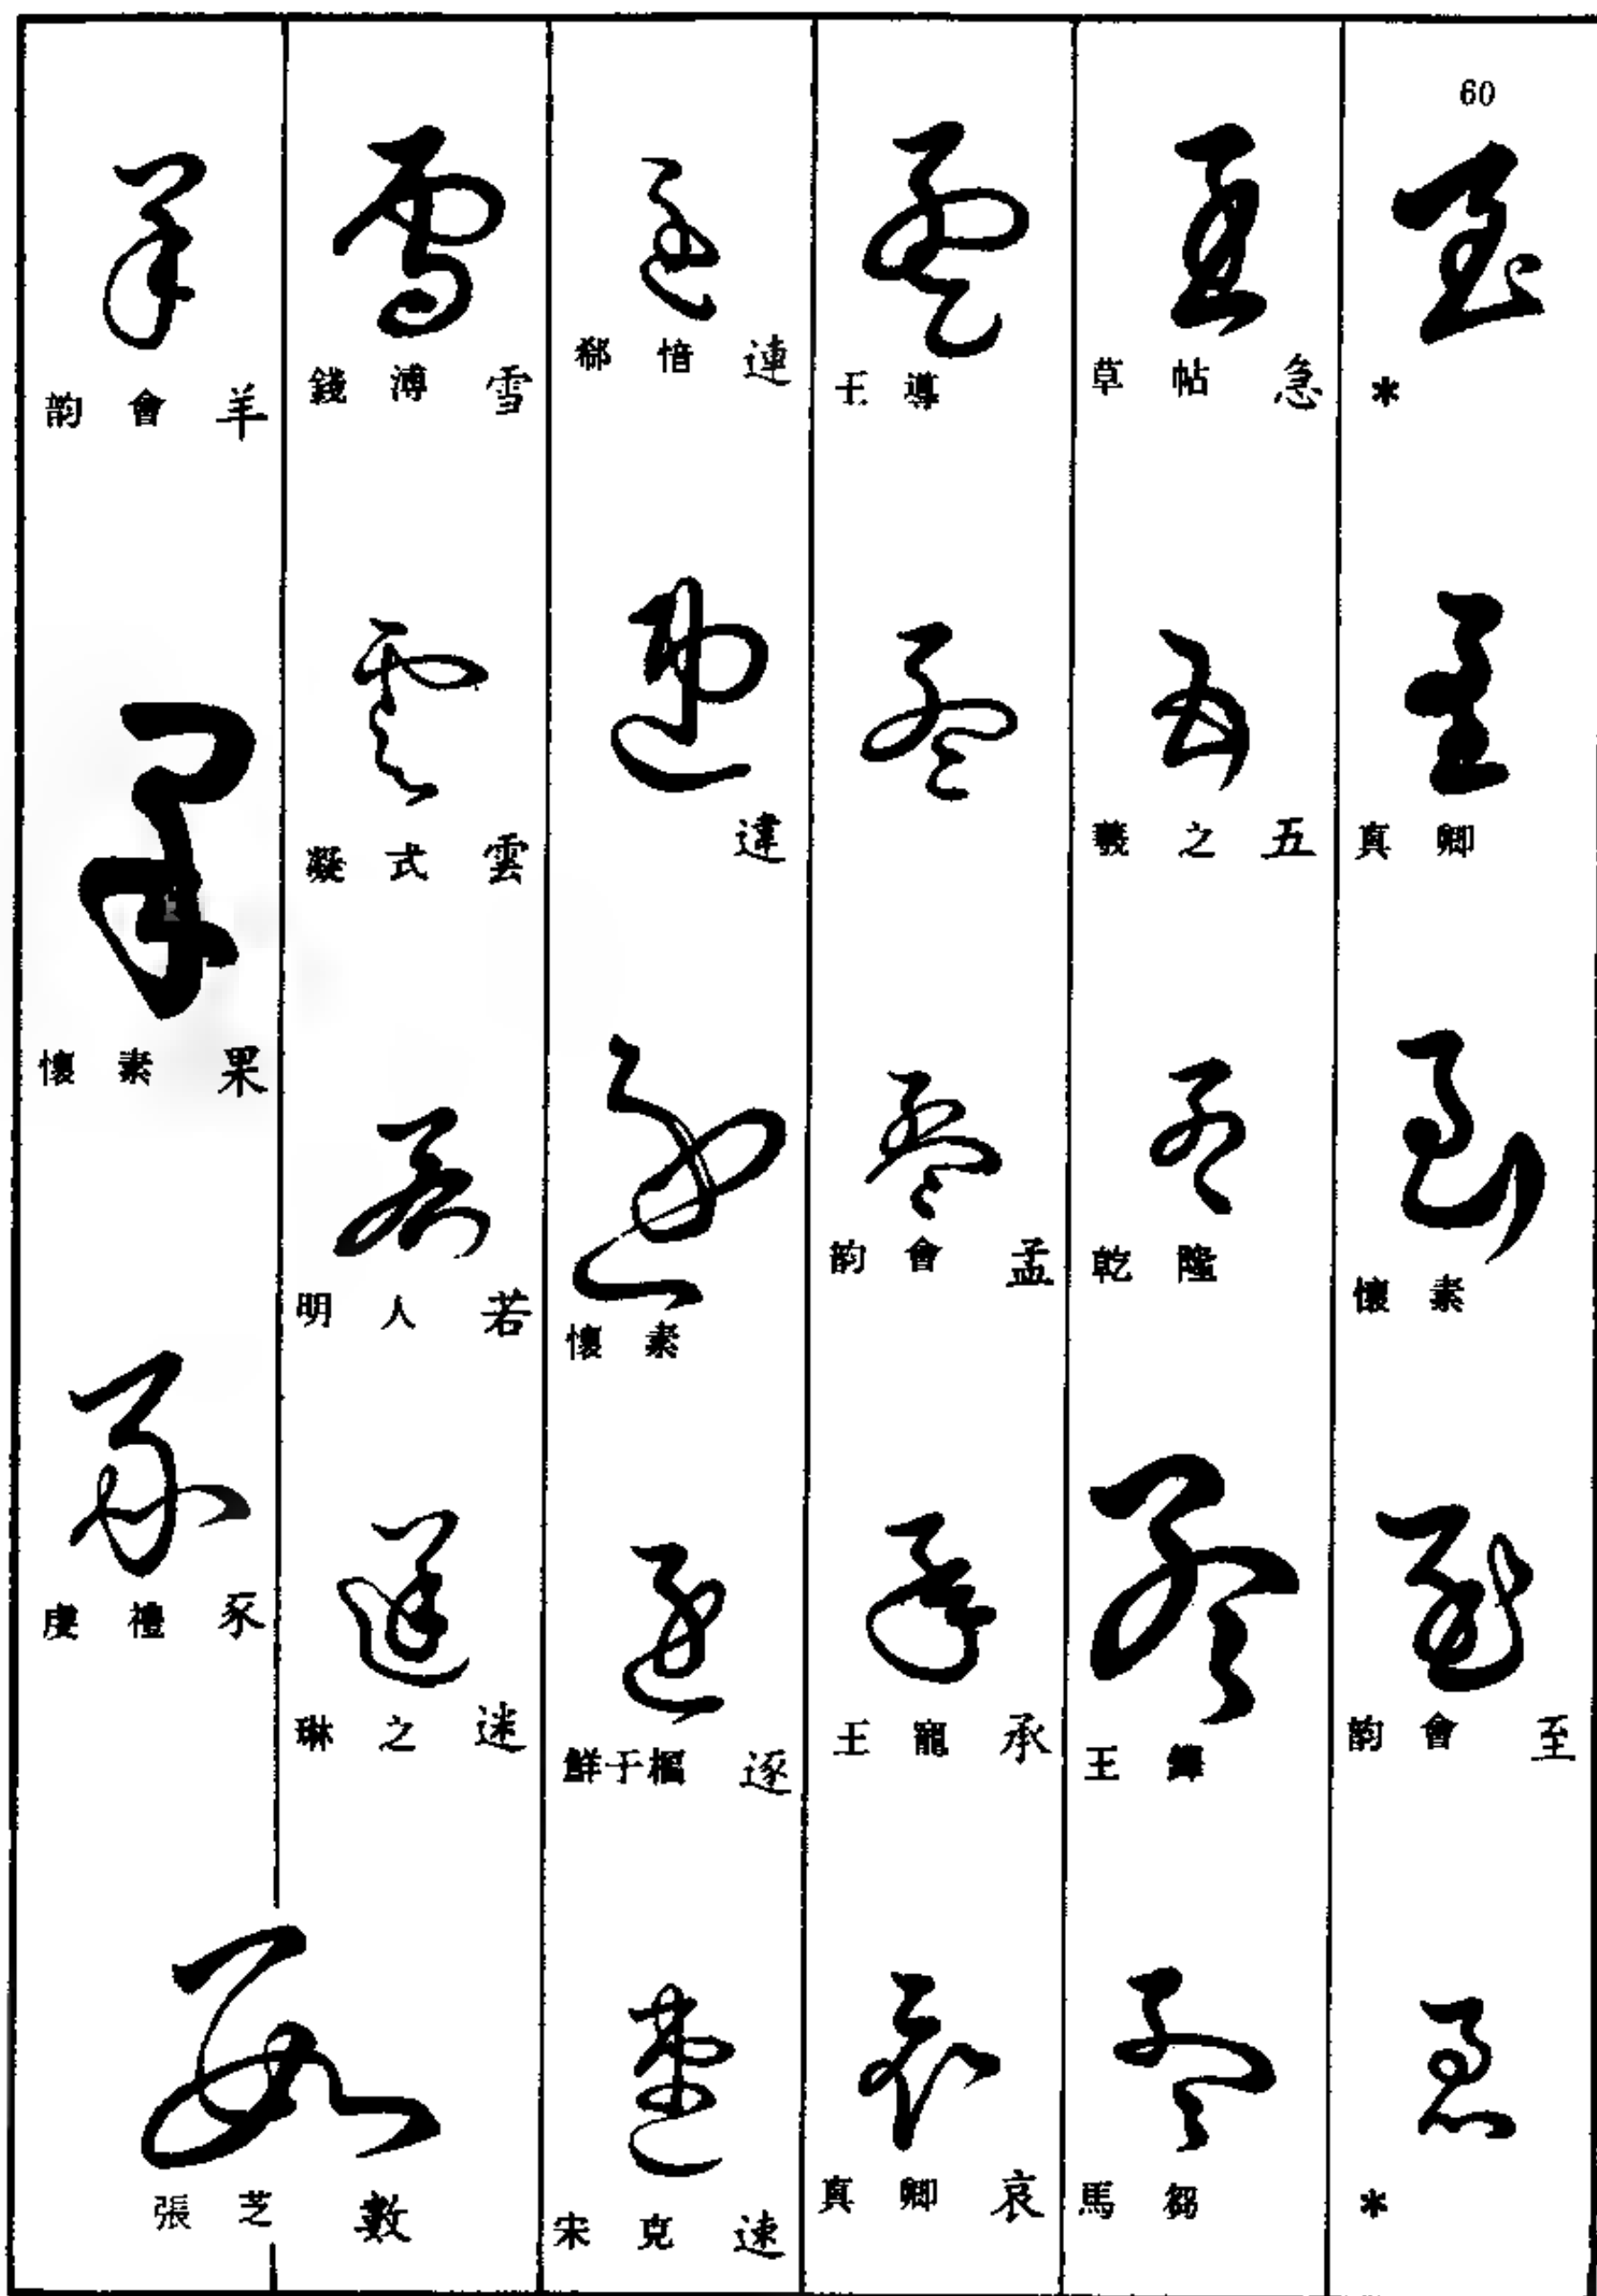 60
*
真卿
懷素
韵會 至
*
草帖 急
羲之 五
乾隆
王鐸
馬芻
王導
韵會 孟
王寵 承
真卿 哀
郗愔 連
違
懷素
鮮于樞 逐
宋克 速
錢溥 雪
凝式 雲
明人 若
琳之 迷
韵會 羊
懷素 果
虔禮 豕
張芝 數